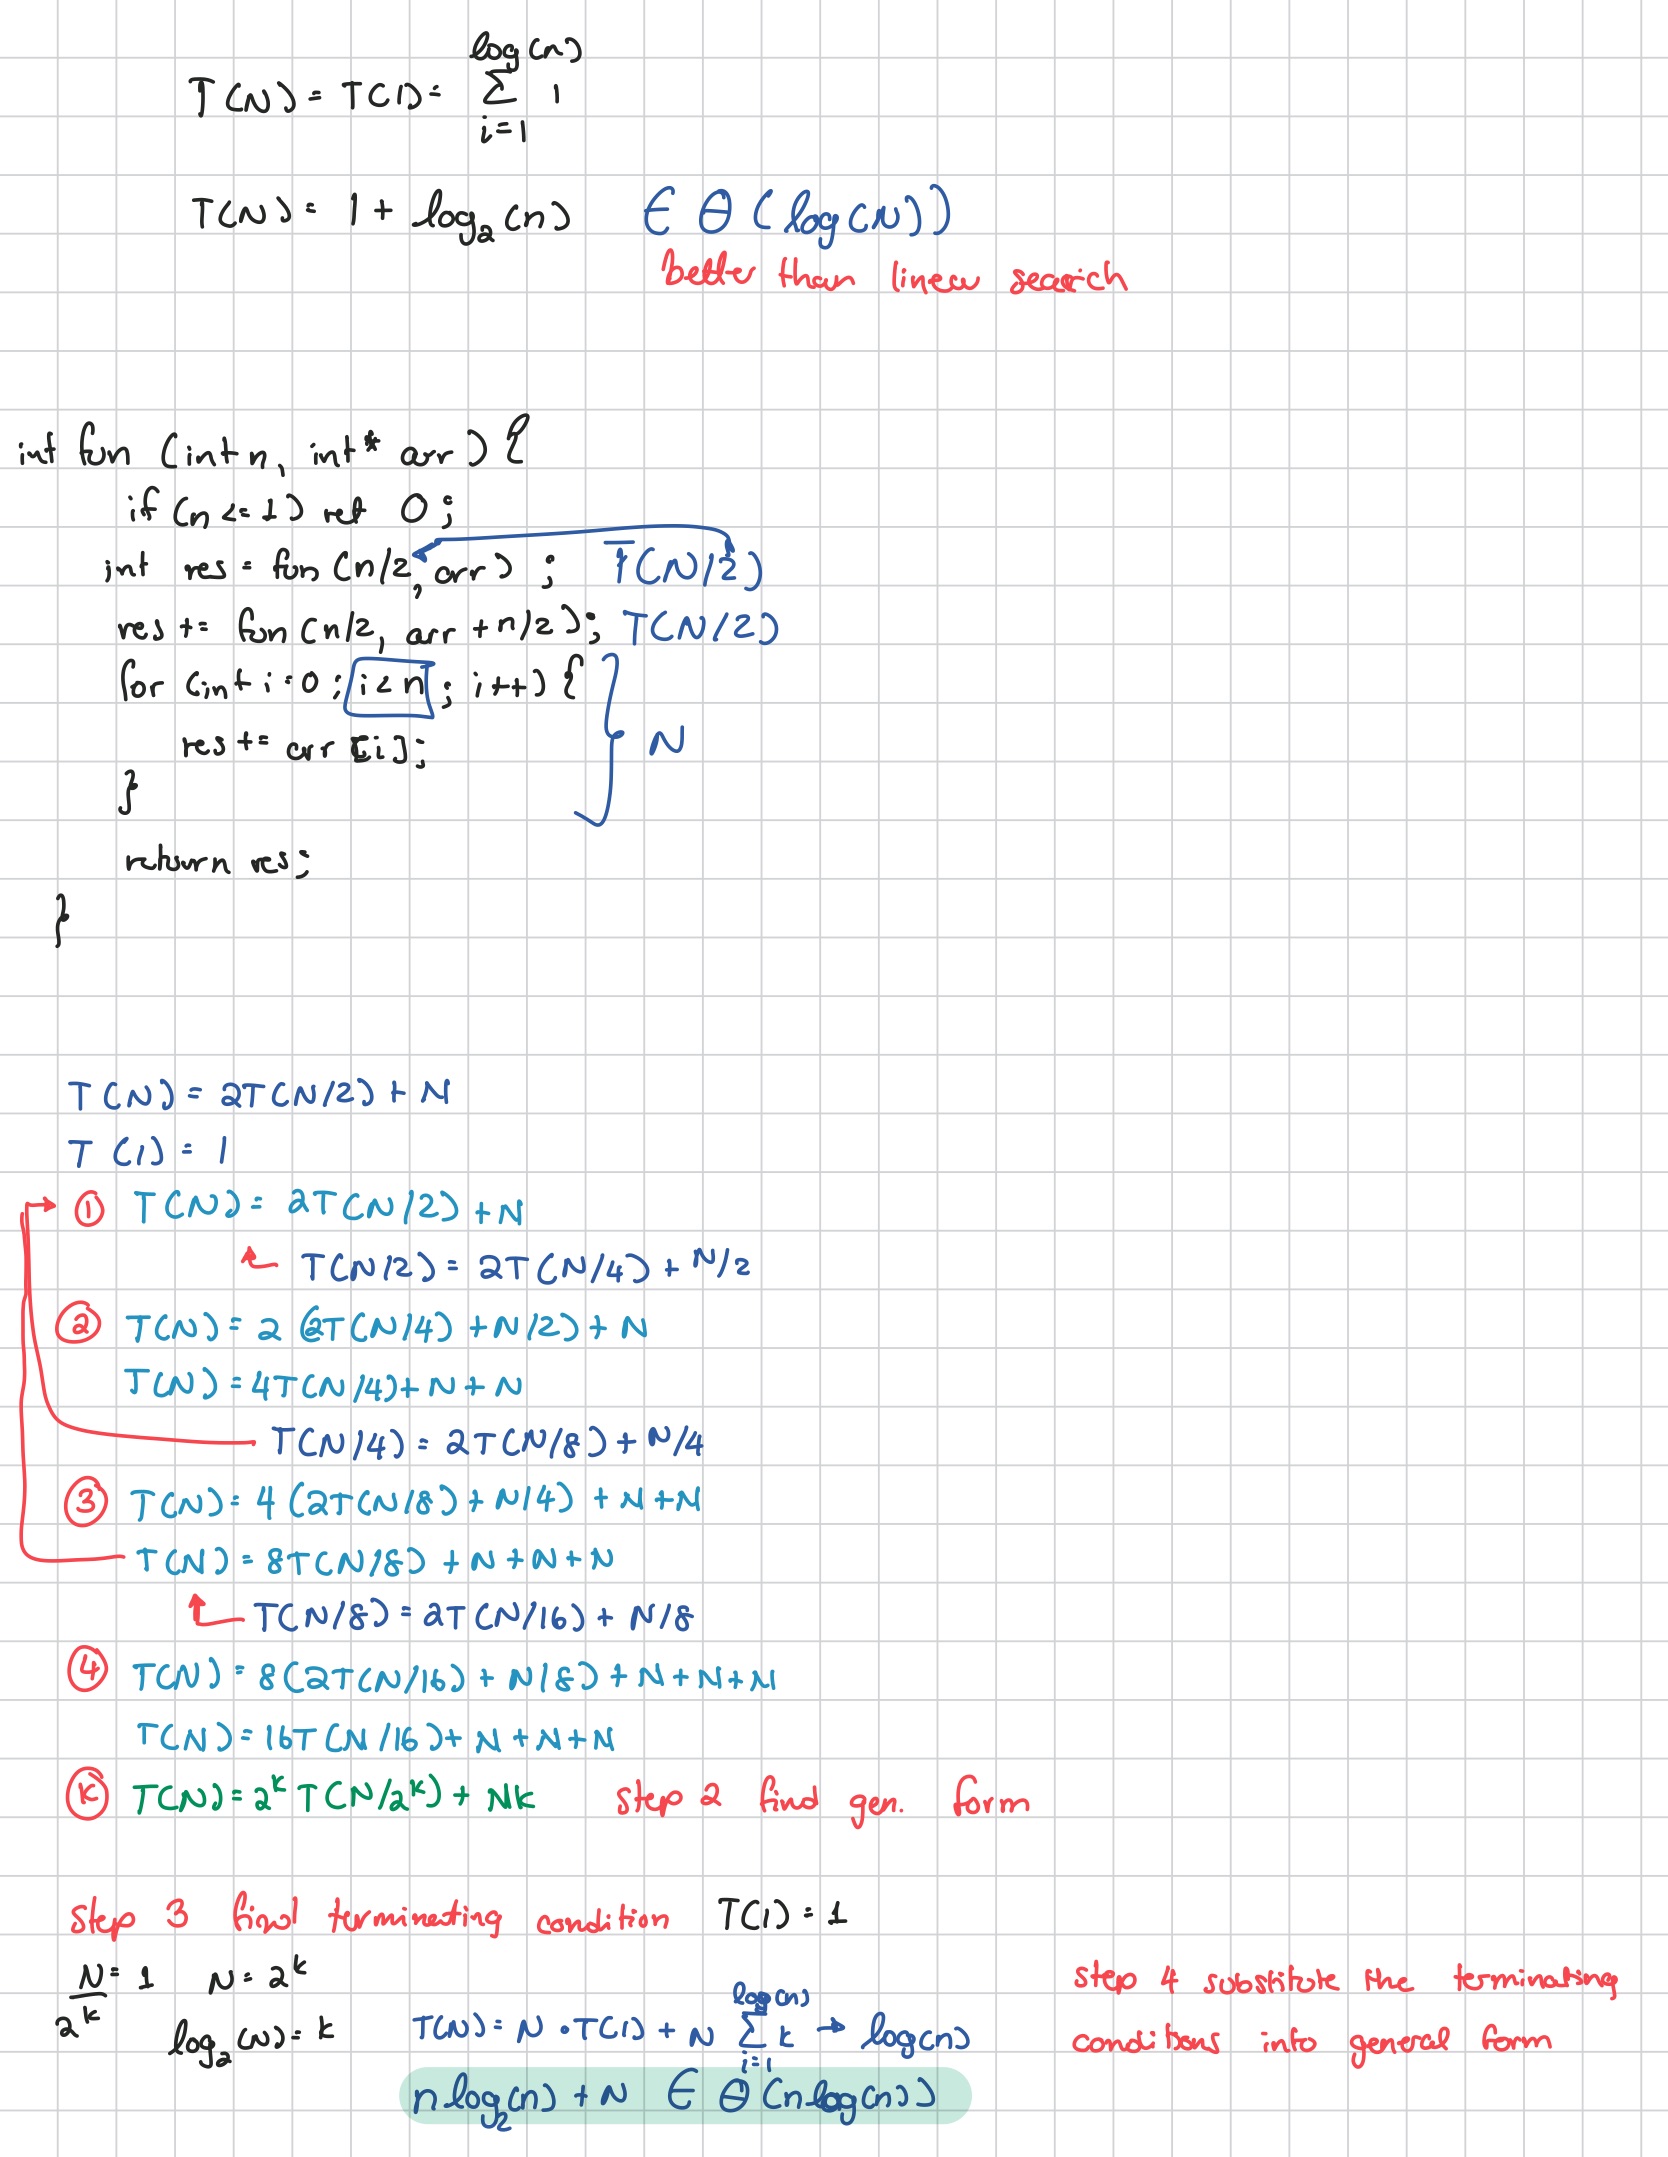 log(n)
T(N) = T(1) = Σ 1
i=1
T(N) = 1 + log₂(n) ∈ Θ(log(N))
better than linear search
int fun (int n, int* arr) {
if (n <= 1) ret 0;
int res = fun (n/2, arr) ; T(N/2)
res += fun (n/2, arr + n/2); T(N/2)
for (int i=0; i<n; i++) {
res += arr[i]; N
}
return res;
}
T(N) = 2T(N/2) + N
T(1) = 1
① T(N) = 2T(N/2) + N
T(N/2) = 2T(N/4) + N/2
② T(N) = 2(2T(N/4) + N/2) + N
T(N) = 4T(N/4) + N + N
T(N/4) = 2T(N/8) + N/4
③ T(N) = 4(2T(N/8) + N/4) + N + N
T(N) = 8T(N/8) + N + N + N
T(N/8) = 2T(N/16) + N/8
④ T(N) = 8(2T(N/16) + N/8) + N + N + N
T(N) = 16T(N/16) + N + N + N
Ⓚ T(N) = 2ᵏT(N/2ᵏ) + Nk step 2 find gen. form
step 3 find terminating condition T(1) = 1
N/2ᵏ = 1 N = 2ᵏ
log₂(N) = k
log(n)
T(N) = N · T(1) + N Σ k → log(n)
i=1
nlog₂(n) + N ∈ Θ(nlog(n))
step 4 substitute the terminating
conditions into general form